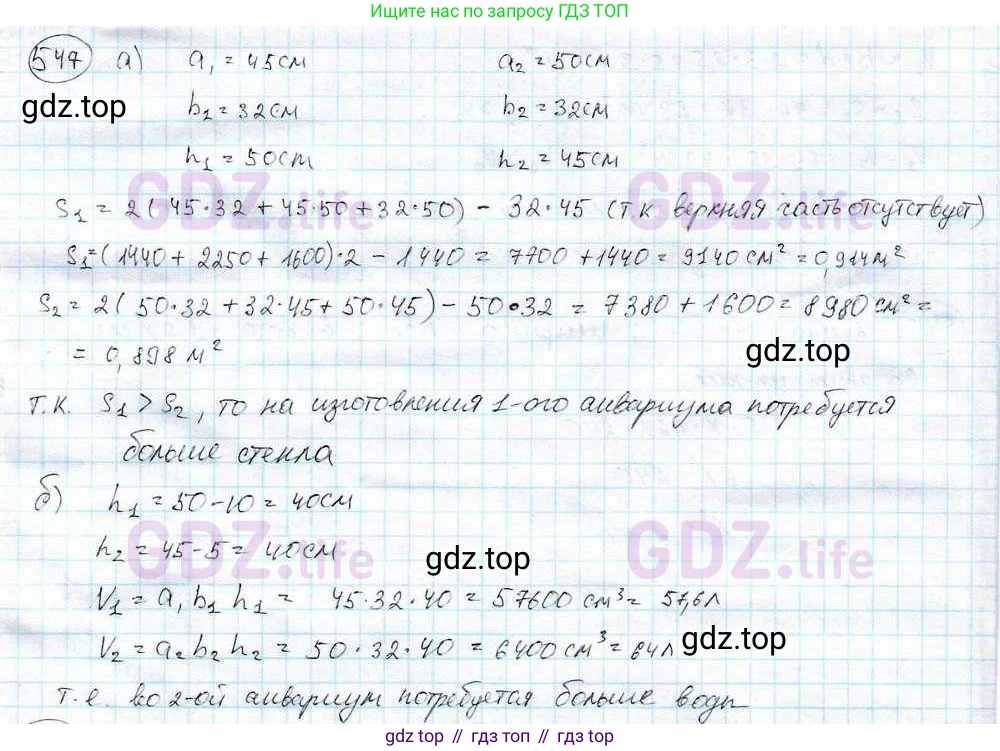 Ищите нас по запросу ГДЗ ТОП
547 а) a₁ = 45см a₂ = 50см
gdz.top
b₁ = 32см b₂ = 32см
h₁ = 50см h₂ = 45см
GDZ.life GDZ.life
S₁ = 2(45·32 + 45·50 + 32·50) - 32·45 (т.к верхняя часть отсутствует)
S₁=(1440 + 2250 + 1600)·2 - 1440 = 7700 + 1440 = 9140 см² = 0,914м²
S₂ = 2(50·32 + 32·45 + 50·45) - 50·32 = 7380 + 1600 = 8980 см² =
= 0,898 м²
gdz.top
т.к. S₁ > S₂, то на изготовления 1-ого аквариума потребуется
больше стекла
б) h₁ = 50-10 = 40см
GDZ.life GDZ.life
h₂ = 45-5 = 40см
gdz.top
V₁ = a₁ b₁ h₁ = 45·32·40 = 57600 см³ = 57,6л
V₂ = a₂ b₂ h₂ = 50·32·40 = 6400 см³ = 64л
gdz.top
т.е. во 2-ой аквариум потребуется больше воды
gdz.top // гдз топ // гдз.топ